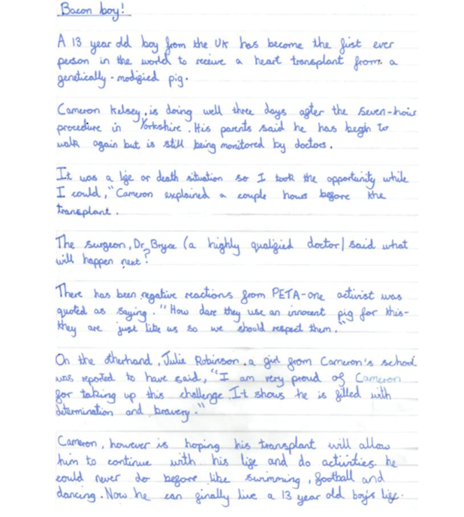 Bacon boy!
A 13 year old boy from the UK has become the first ever
person in the world to receive a heart transplant from a
genetically-modified pig.
Cameron Kelsey, is doing well three days after the seven-hour
procedure in Yorkshire. His parents said he has begin to
walk again but is still being monitored by doctors.
It was a life or death situation so I took the opportunity while
I could," Cameron explained a couple hours before the
transplant.
The surgeon, Dr Bryce (a highly qualified doctor) said what
will happen next?
There has been negative reactions from PETA-one activist was
quoted as saying. "How dare they use an innocent pig for this-
they are just like us so we should respect them."
On the otherhand, Julie Robinson, a girl from Cameron's school
was reported to have said, "I am very proud of Cameron
for taking up this challenge. It shows he is filled with
determination and bravery."
Cameron, however is hoping his transplant will allow
him to continue with his life and do activities he
could never do before like swimming, football and
dancing. Now he can finally live a 13 year old boys life.